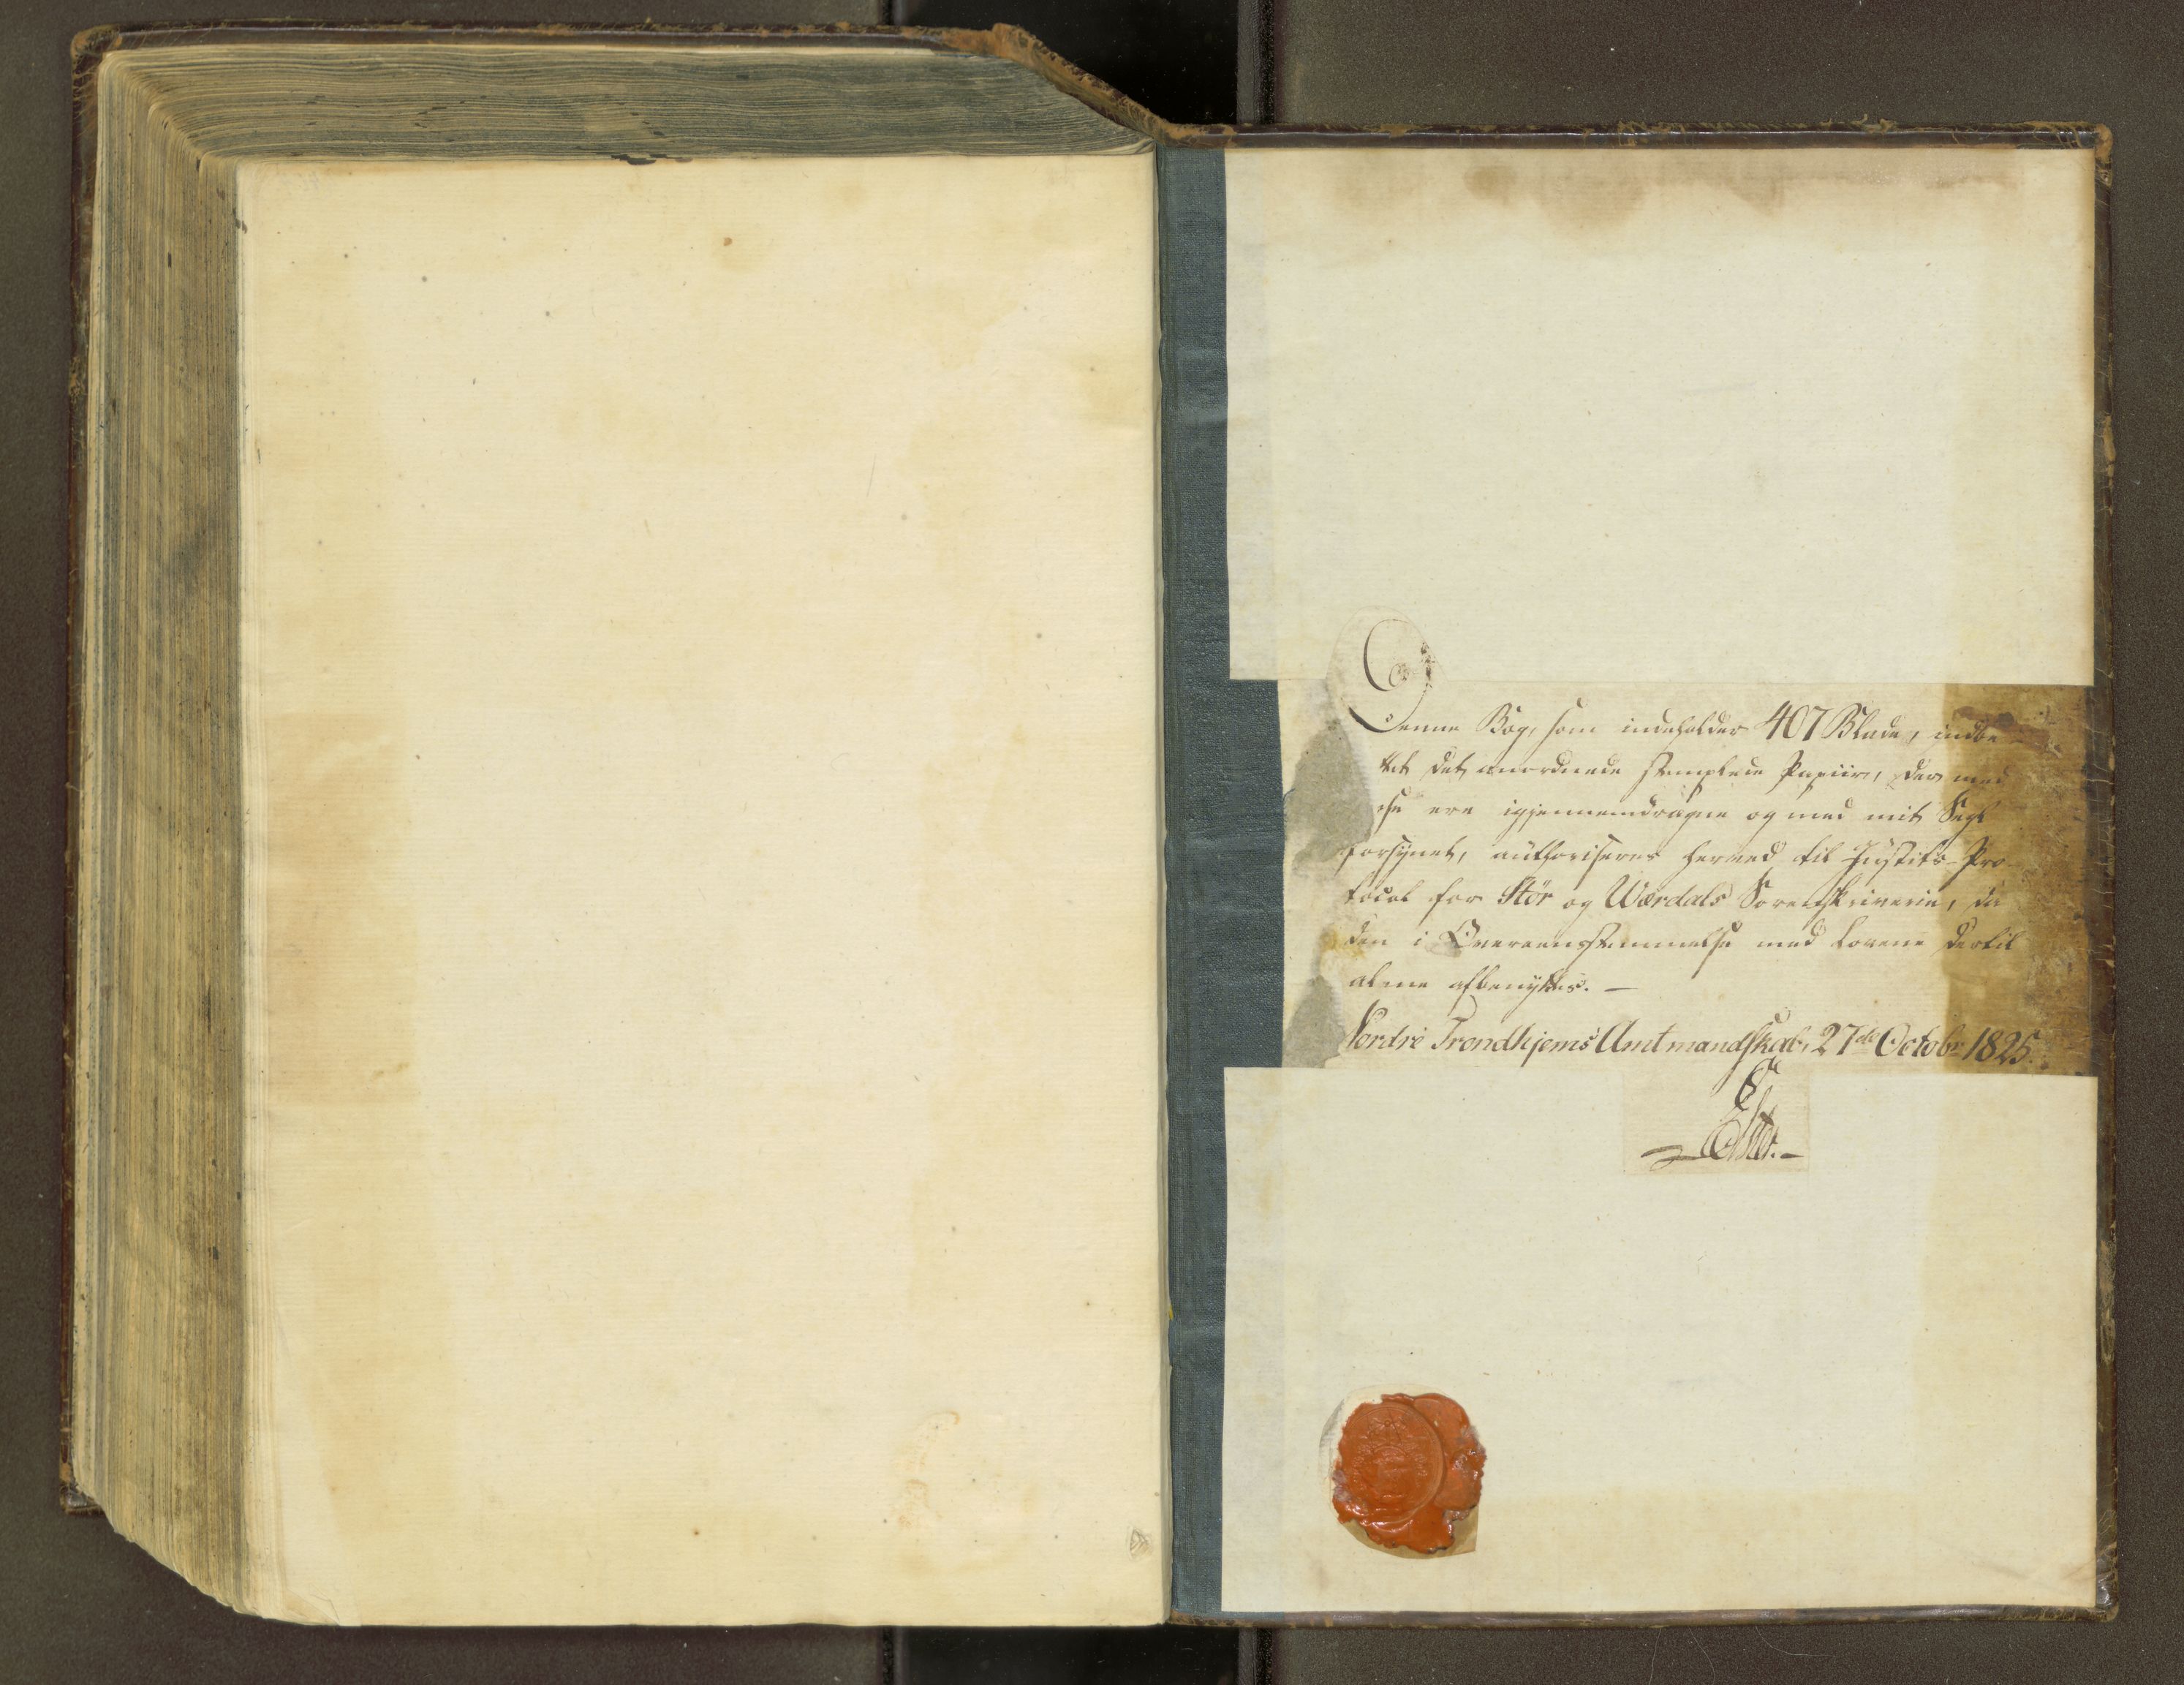 Denne Bog, som indeholder 407 Blade, indbe-
tet det anordnede stemplede Papiir, der med
ere igjennemdragne og med mit Segl
forsynet, authoriseres herved til Justits-Pro-
tocol for Stør og Wærdals Sorenskriverie, da
den i Overeensstemmelse med Lovene dertil
alene afbenyttes. —
Nordre Trondhjems Amtmandskab, 27de Octobr 1825.